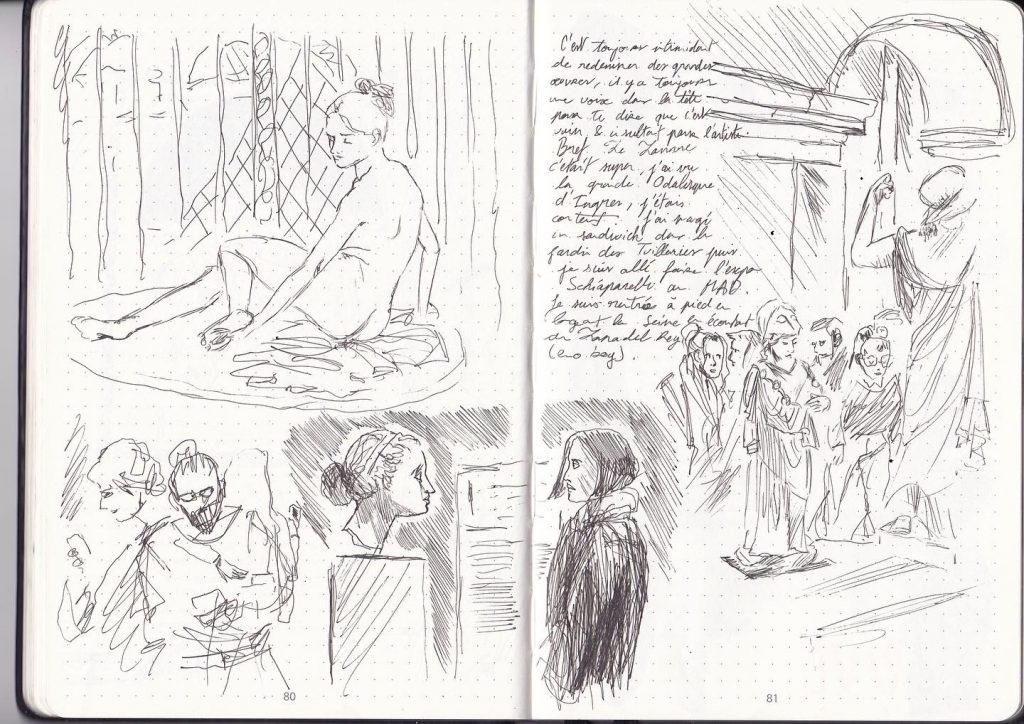 C'est toujours intimidant
de redessiner des grandes
œuvres, il y a toujours
une voix dans la tête
pour te dire que c'est
vain & insultant pour l'artiste.
Bref Le Louvre
c'était super, j'ai vu
la grande Odalisque
d'Ingres, j'étais
content. j'ai mangé
un sandwich dans le
jardin des Tuileries puis
je suis allé faire l'expo
Schiaparelli au MAD.
Je suis rentré à pied en
longeant la Seine en écoutant
du Lana del Rey
(emo boy).
80
81